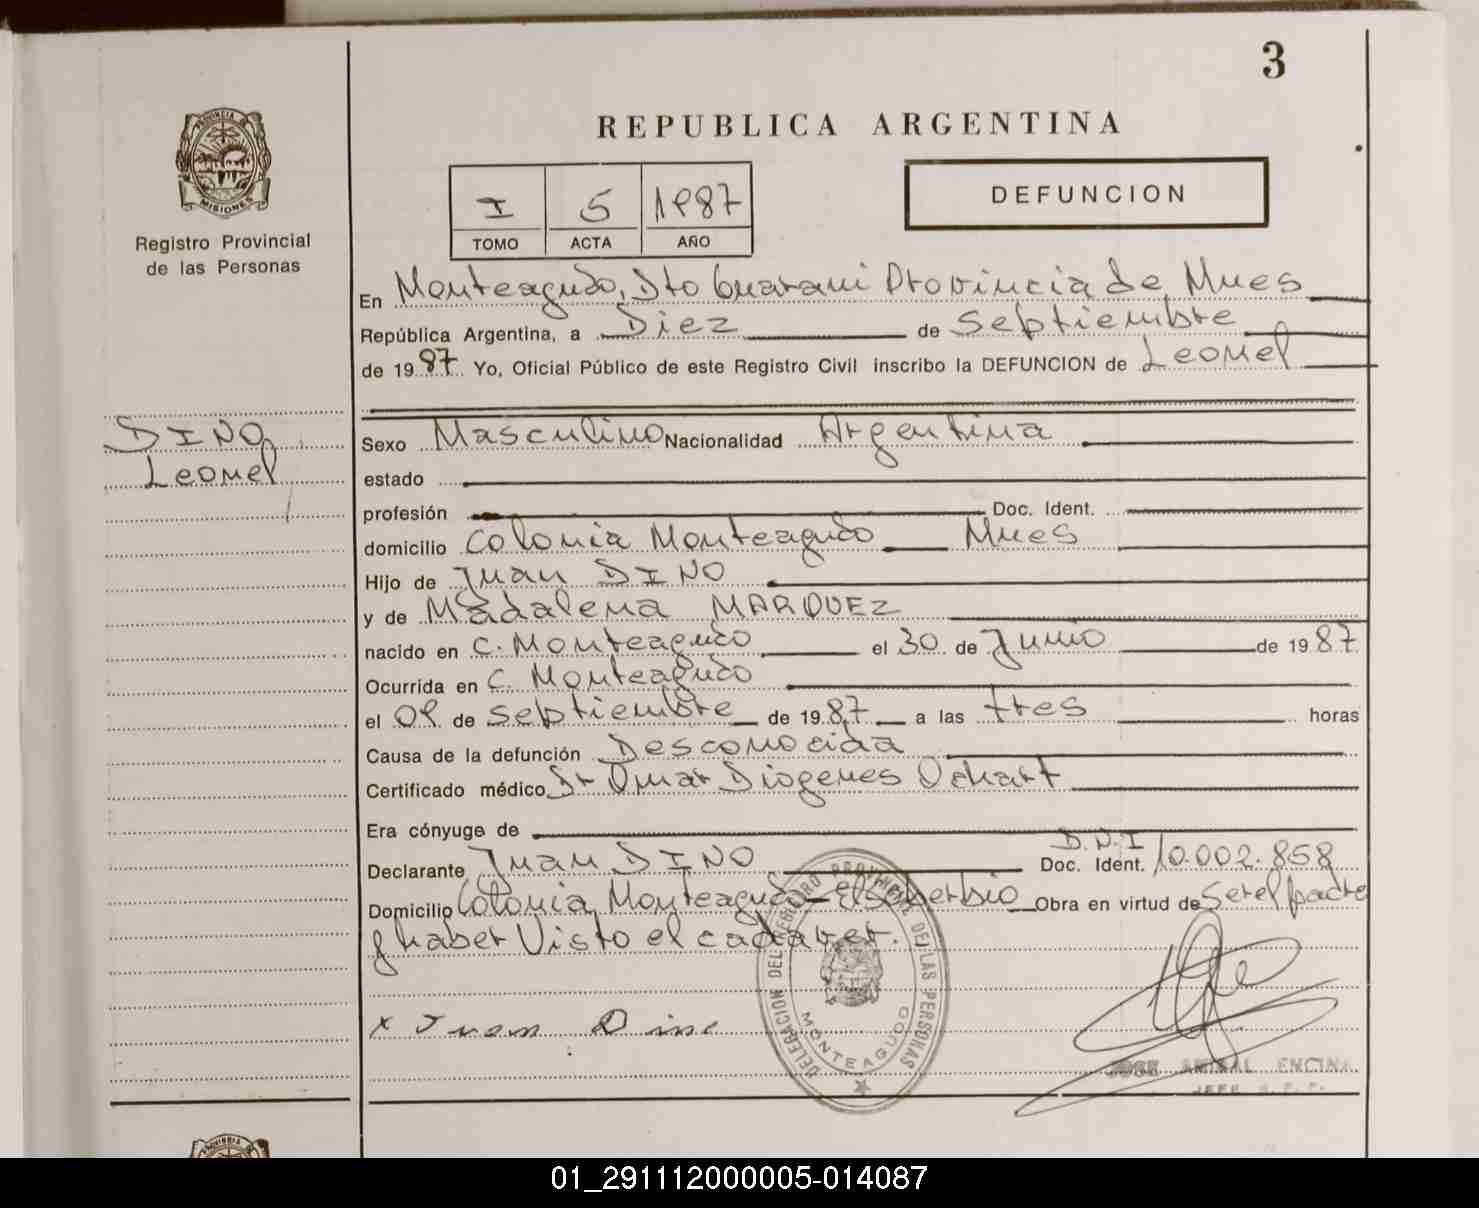 3
PROVINCIA DE
MISIONES
Registro Provincial
de las Personas
REPUBLICA ARGENTINA
I 5 1987
TOMO ACTA AÑO
DEFUNCION
En Monteagudo, Dto Guarani Provincia de Mnes
República Argentina, a Diez de Septiembre
de 1987 Yo, Oficial Público de este Registro Civil inscribo la DEFUNCION de Leonel
DINO
Leonel
Sexo Masculino Nacionalidad Argentina
estado
profesión Doc. Ident.
domicilio Colonia Monteagudo Mnes
Hijo de Juan DINO
y de Madalena MARQUEZ
nacido en C. Monteagudo el 30 de Junio de 1987
Ocurrida en C. Monteagudo
el 09 de septiembre de 1987 a las tres horas
Causa de la defunción Desconocida
Certificado médico Dr Omar Diogenes Ochart
Era cónyuge de
D.N.I
Declarante Juan DINO Doc. Ident. 10.002.858
Domicilio Colonia Monteagudo - El Soberbio Obra en virtud de Ser el padre
y haber Visto el cadaver.
x Juan Dino
DELEGACION DEL REGISTRO PROVINCIAL DE LAS PERSONAS
MONTEAGUDO
JOSE ANIBAL ENCINA
JEFE R.P.P.
01_291112000005-014087